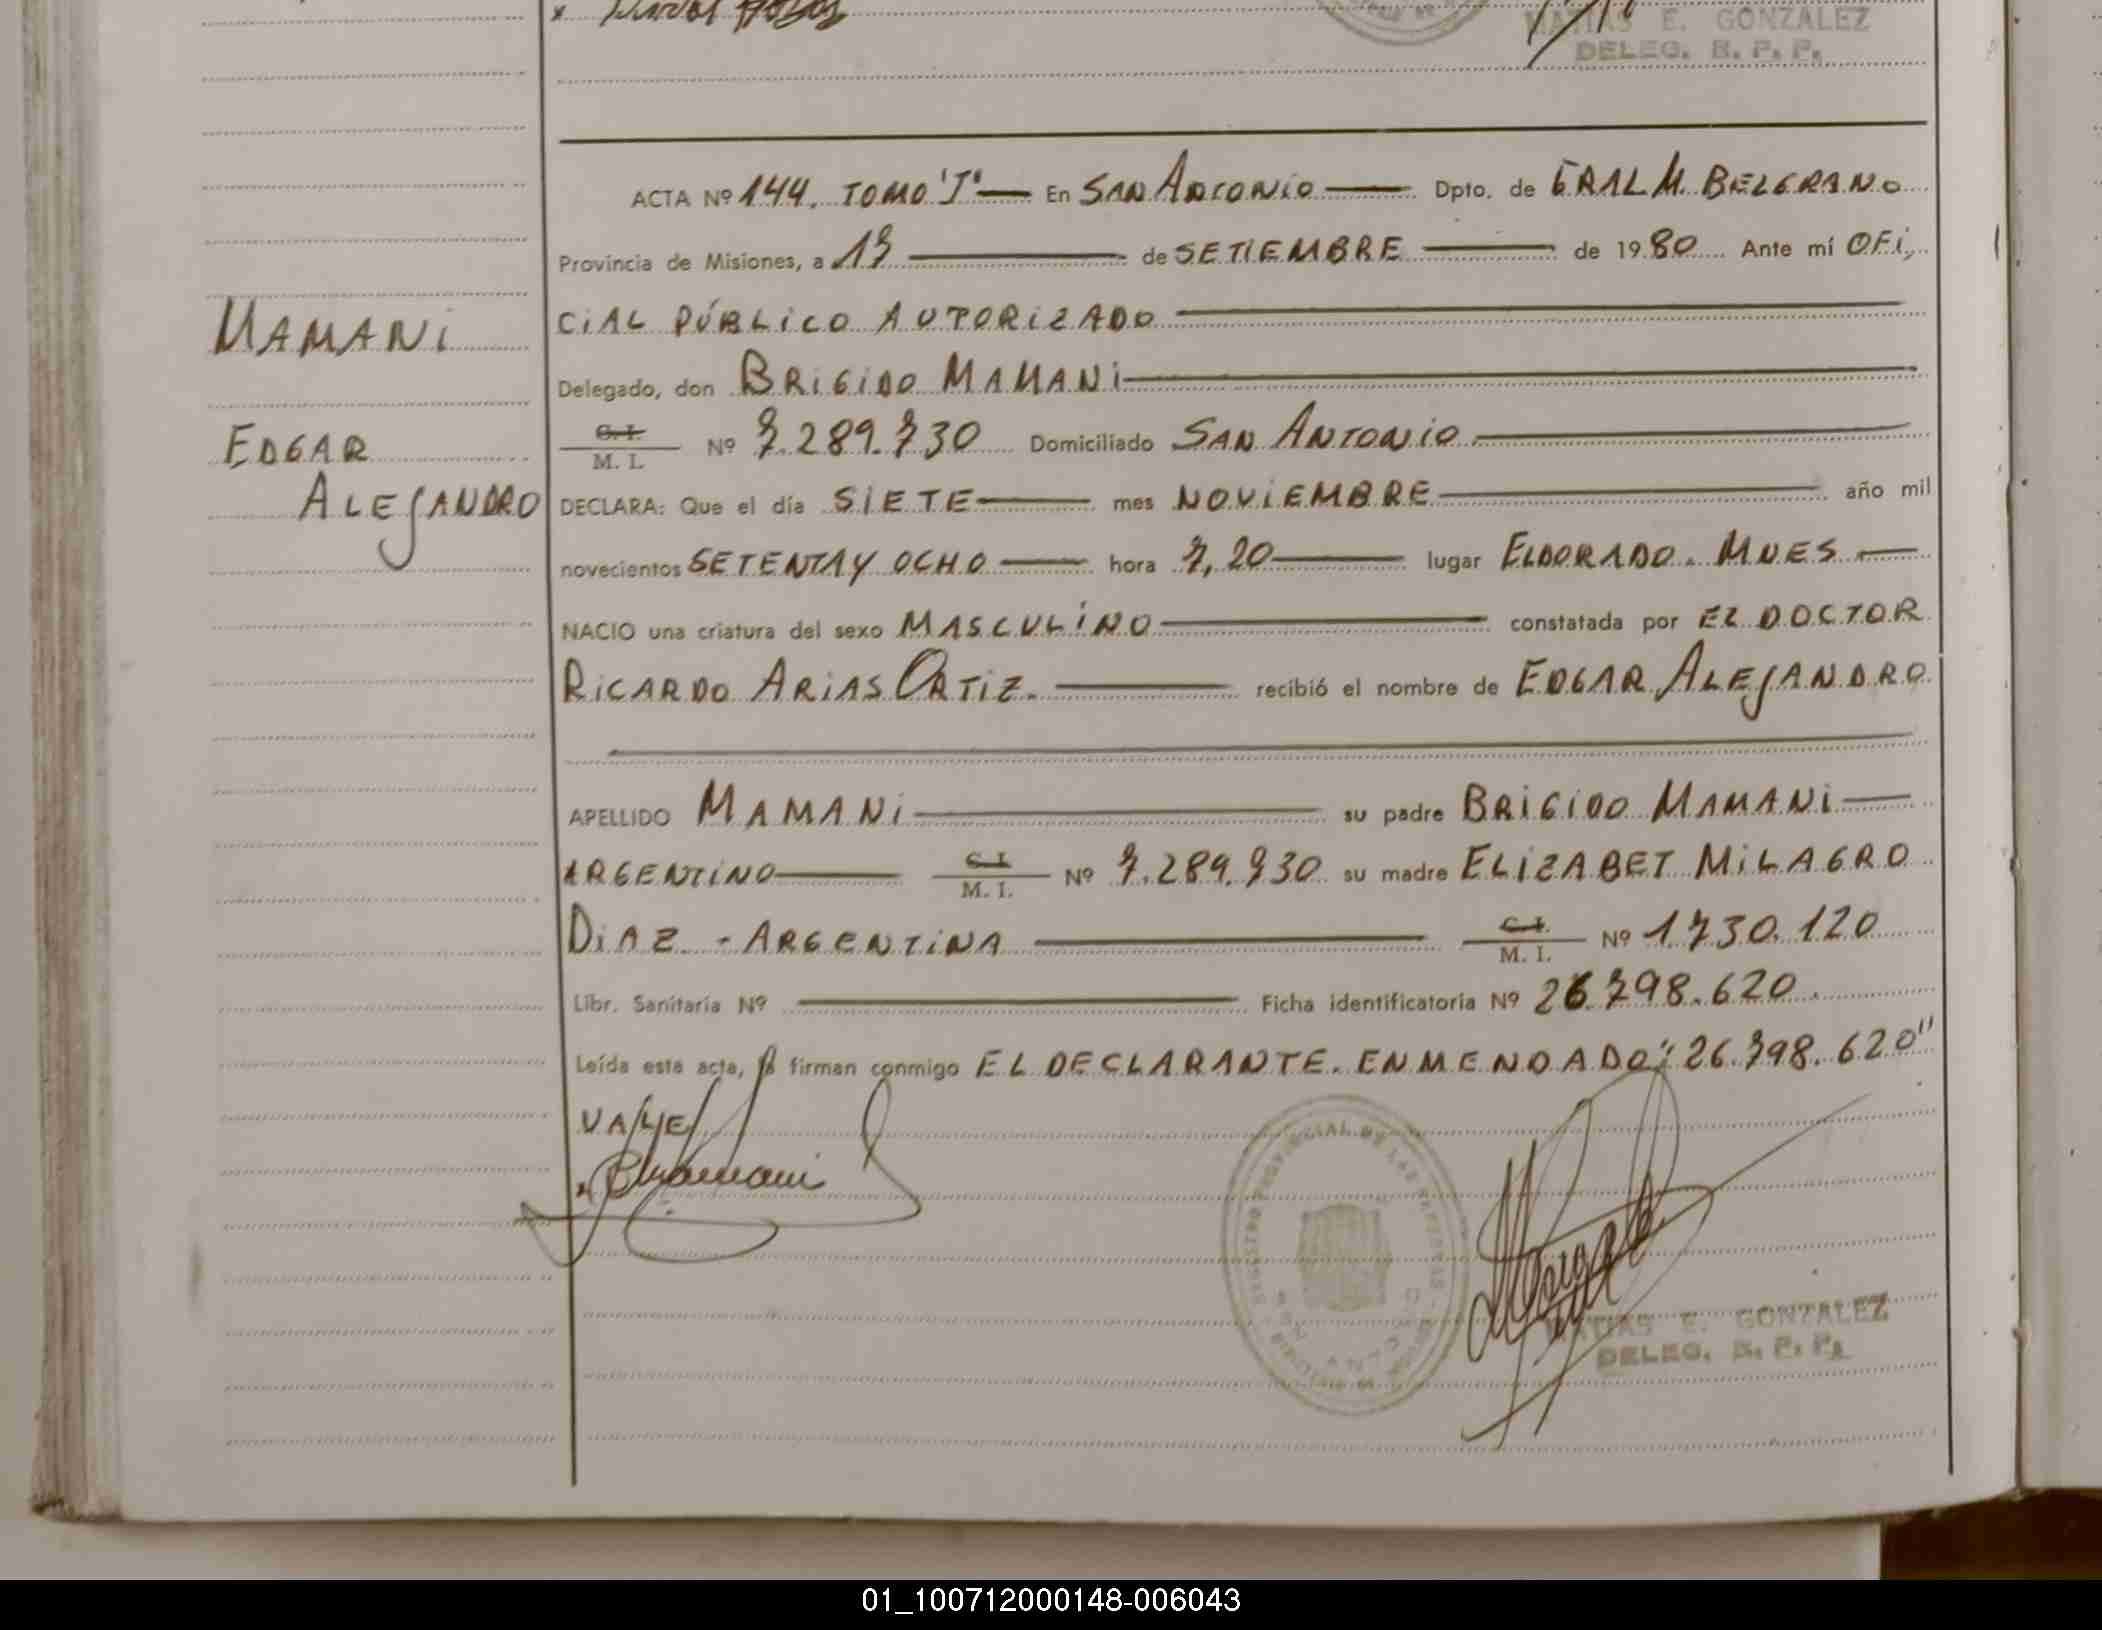 MATIAS E. GONZALEZ
DELEG. R. P. P.
ACTA Nº 144. TOMO "I" En SAN ANTONIO Dpto. de GRAL M. BELGRANO
Provincia de Misiones, a 19 de SETIEMBRE de 1980 Ante mí OFI,
CIAL PÚBLICO AUTORIZADO
Delegado, don BRIGIDO MAMANI
MAMANI
C. I.
M. I. Nº 7.289.730 Domiciliado SAN ANTONIO
EDGAR
ALEJANDRO
DECLARA: Que el día SIETE mes NOVIEMBRE año mil
novecientos SETENTA Y OCHO hora 7,20 lugar ELDORADO. MNES
NACIO una criatura del sexo MASCULINO constatada por EL DOCTOR
RICARDO ARIAS ORTIZ. recibió el nombre de EDGAR ALEJANDRO
APELLIDO MAMANI su padre BRIGIDO MAMANI
ARGENTINO C. I. M. I. Nº 7.289.730 su madre ELIZABET MILAGRO
DIAZ - ARGENTINA C. I. M. I. Nº 1.730.120
Libr. Sanitaria Nº Ficha identificatoria Nº 26.798.620
Leída esta acta, firman conmigo EL DECLARANTE. ENMENDADO: "26.798.620"
VALE
BMamani
MATIAS E. GONZALEZ
DELEG. R. P. P.
01_100712000148-006043